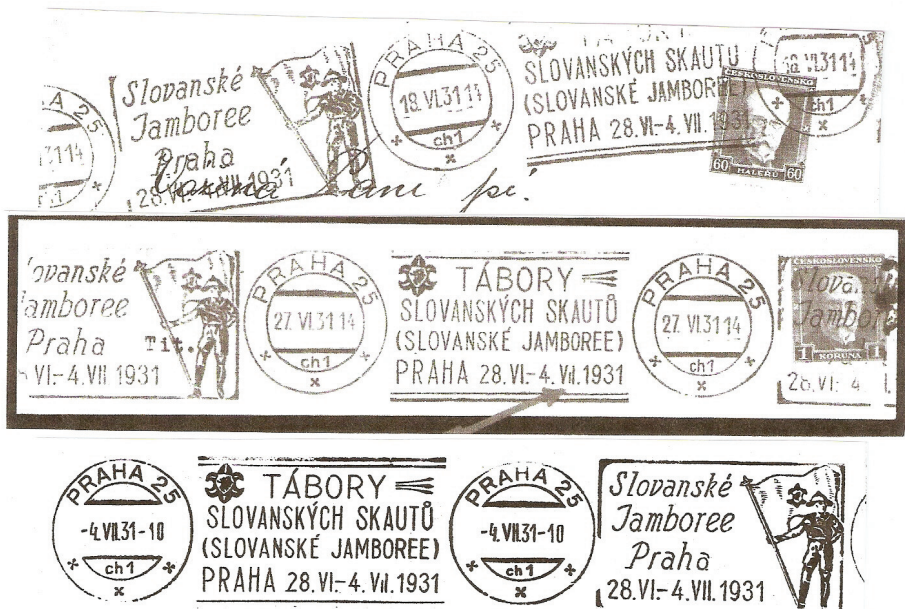 PRAHA 25
31 14
ch1
Slovanské
Jamboree
Praha
28.VI.-4.VII.1931
PRAHA 25
18.VI.31 14
ch1
TÁBORY
SLOVANSKÝCH SKAUTŮ
(SLOVANSKÉ JAMBOREE)
PRAHA 28.VI.-4.VII.1931
18.VI.31 14
ch1
ČESKOSLOVENSKO
60 HALÉŘŮ 60
paní
ovanské
amboree
Praha Tit.
VI-4.VII 1931
PRAHA 25
27.VI.31 14
ch1
TÁBORY
SLOVANSKÝCH SKAUTŮ
(SLOVANSKÉ JAMBOREE)
PRAHA 28.VI.-4.VII.1931
PRAHA 25
27.VI.31 14
ch1
ČESKOSLOVENSKO
Slova
Jambor
1 KORUNA 1
28.VI.- 4
PRAHA 25
-4.VII.31-10
ch1
TÁBORY
SLOVANSKÝCH SKAUTŮ
(SLOVANSKÉ JAMBOREE)
PRAHA 28.VI.-4.VII.1931
PRAHA 25
-4.VII.31-10
ch1
Slovanské
Jamboree
Praha
28.VI.-4.VII.1931